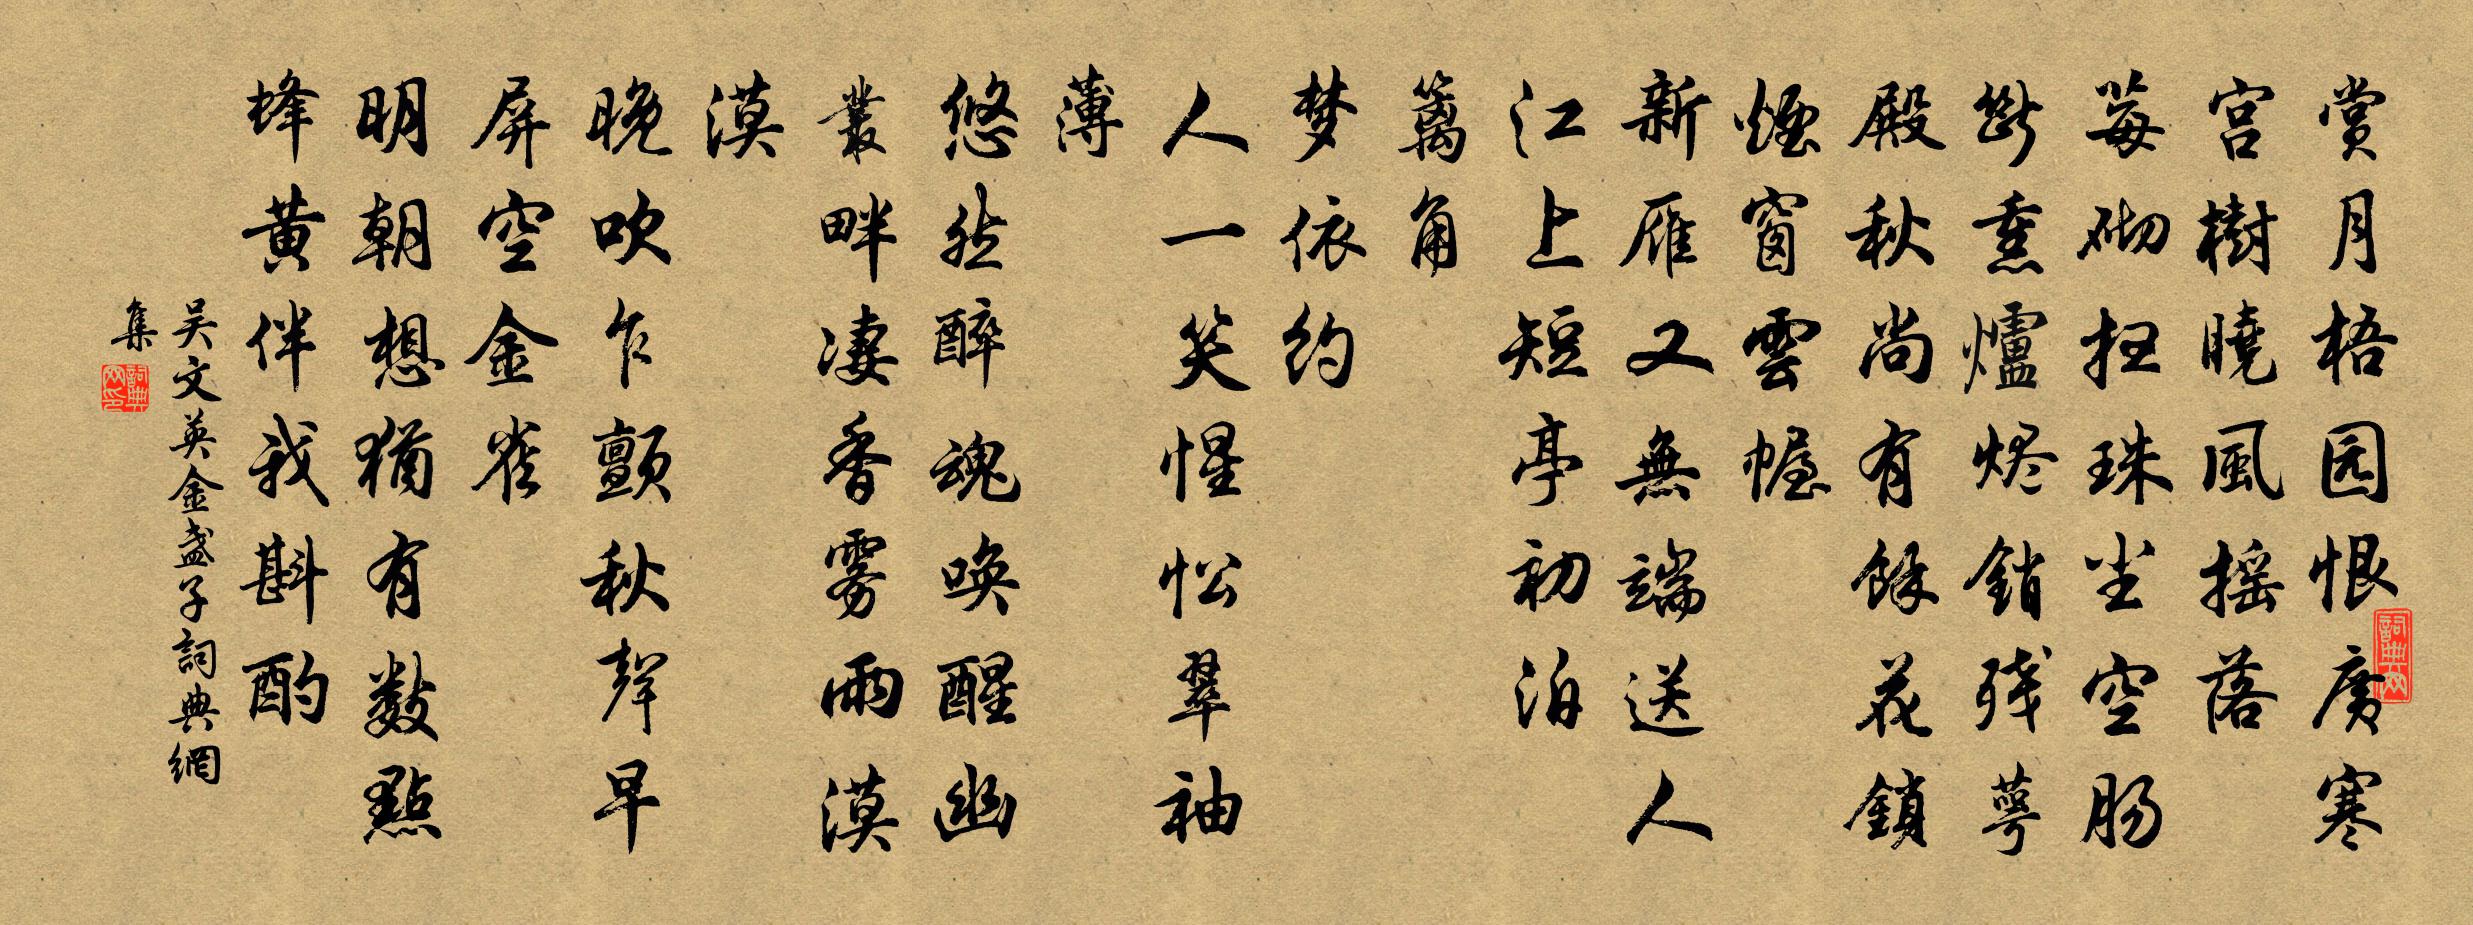 賞月梧园恨廣寒
宮樹曉風摇落
莓砌扫珠尘空肠
斷熏爐烬銷残萼
殿秋尚有餘花鎖
煙窗雲幄
新雁又無端送人
江上短亭初泊
籬角
梦依约
人一笑惺忪翠袖
薄
悠然醉魂唤醒幽
叢畔凄香雾雨漠
漠
晚吹乍顫秋聲早
屏空金雀
明朝想猶有数點
蜂黄伴我斟酌
吴文英金盏子詞典網
集
詞典网印
詞典网